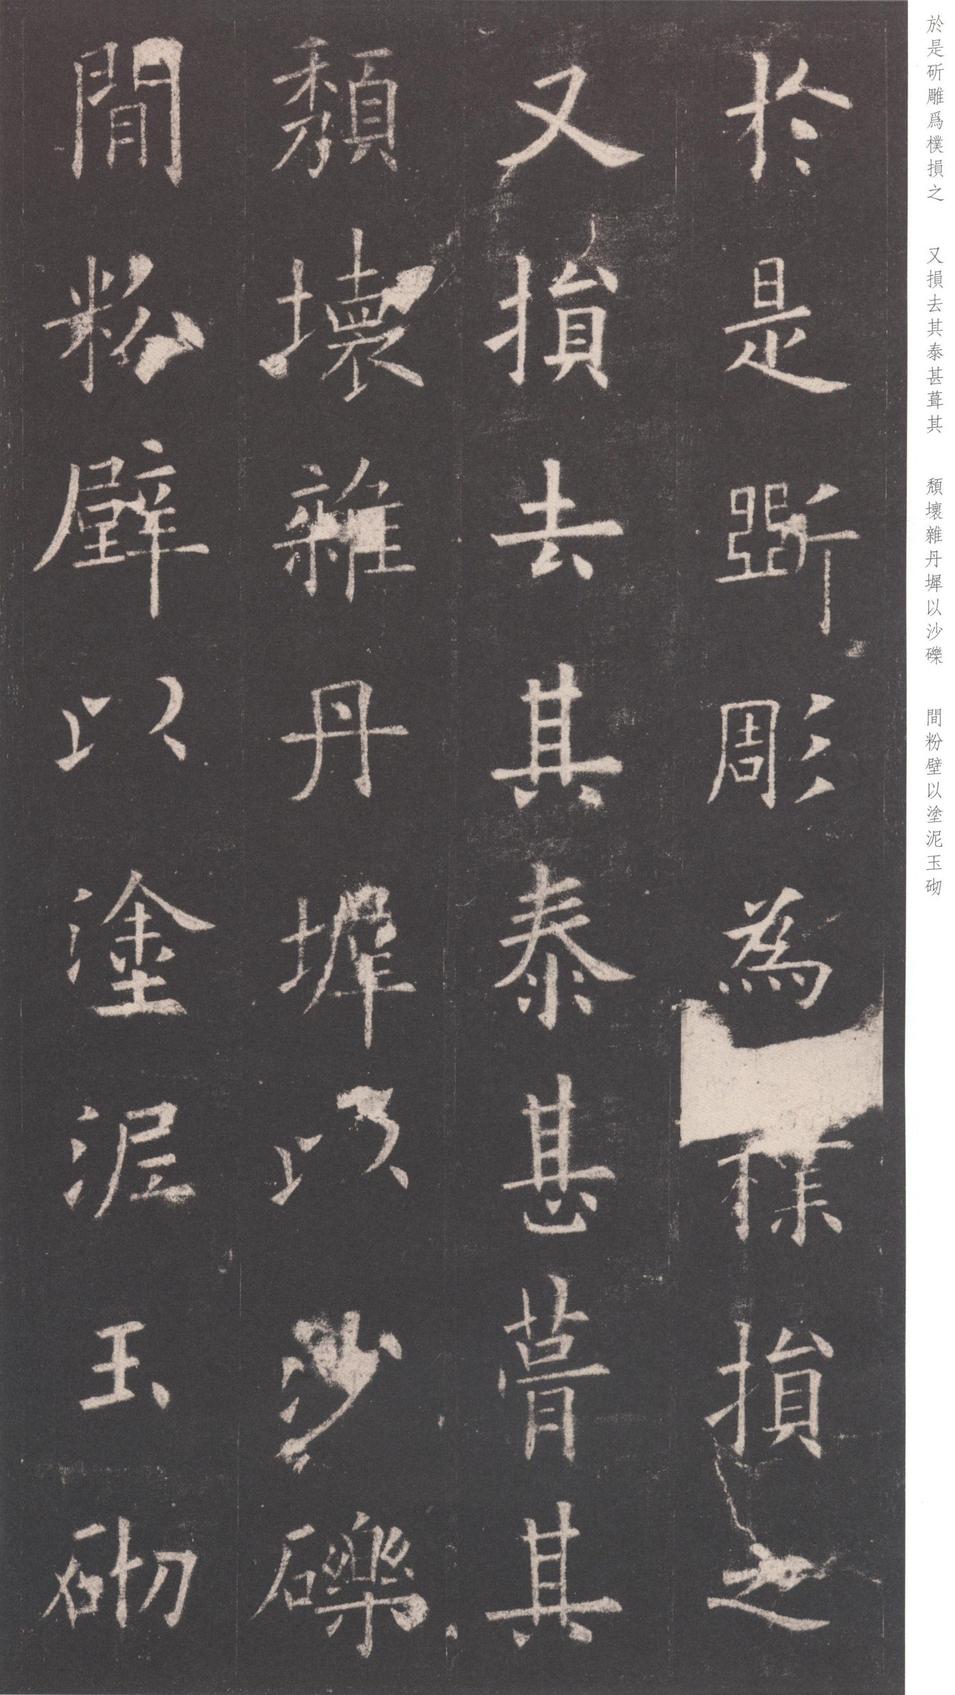 於是斲彫為樸損之
又損去其泰甚葺其
頹壞雜丹墀以沙礫
間粉壁以塗泥玉砌
於是斫雕爲樸損之 又損去其泰甚葺其 頹壞雜丹墀以沙礫 間粉壁以塗泥玉砌